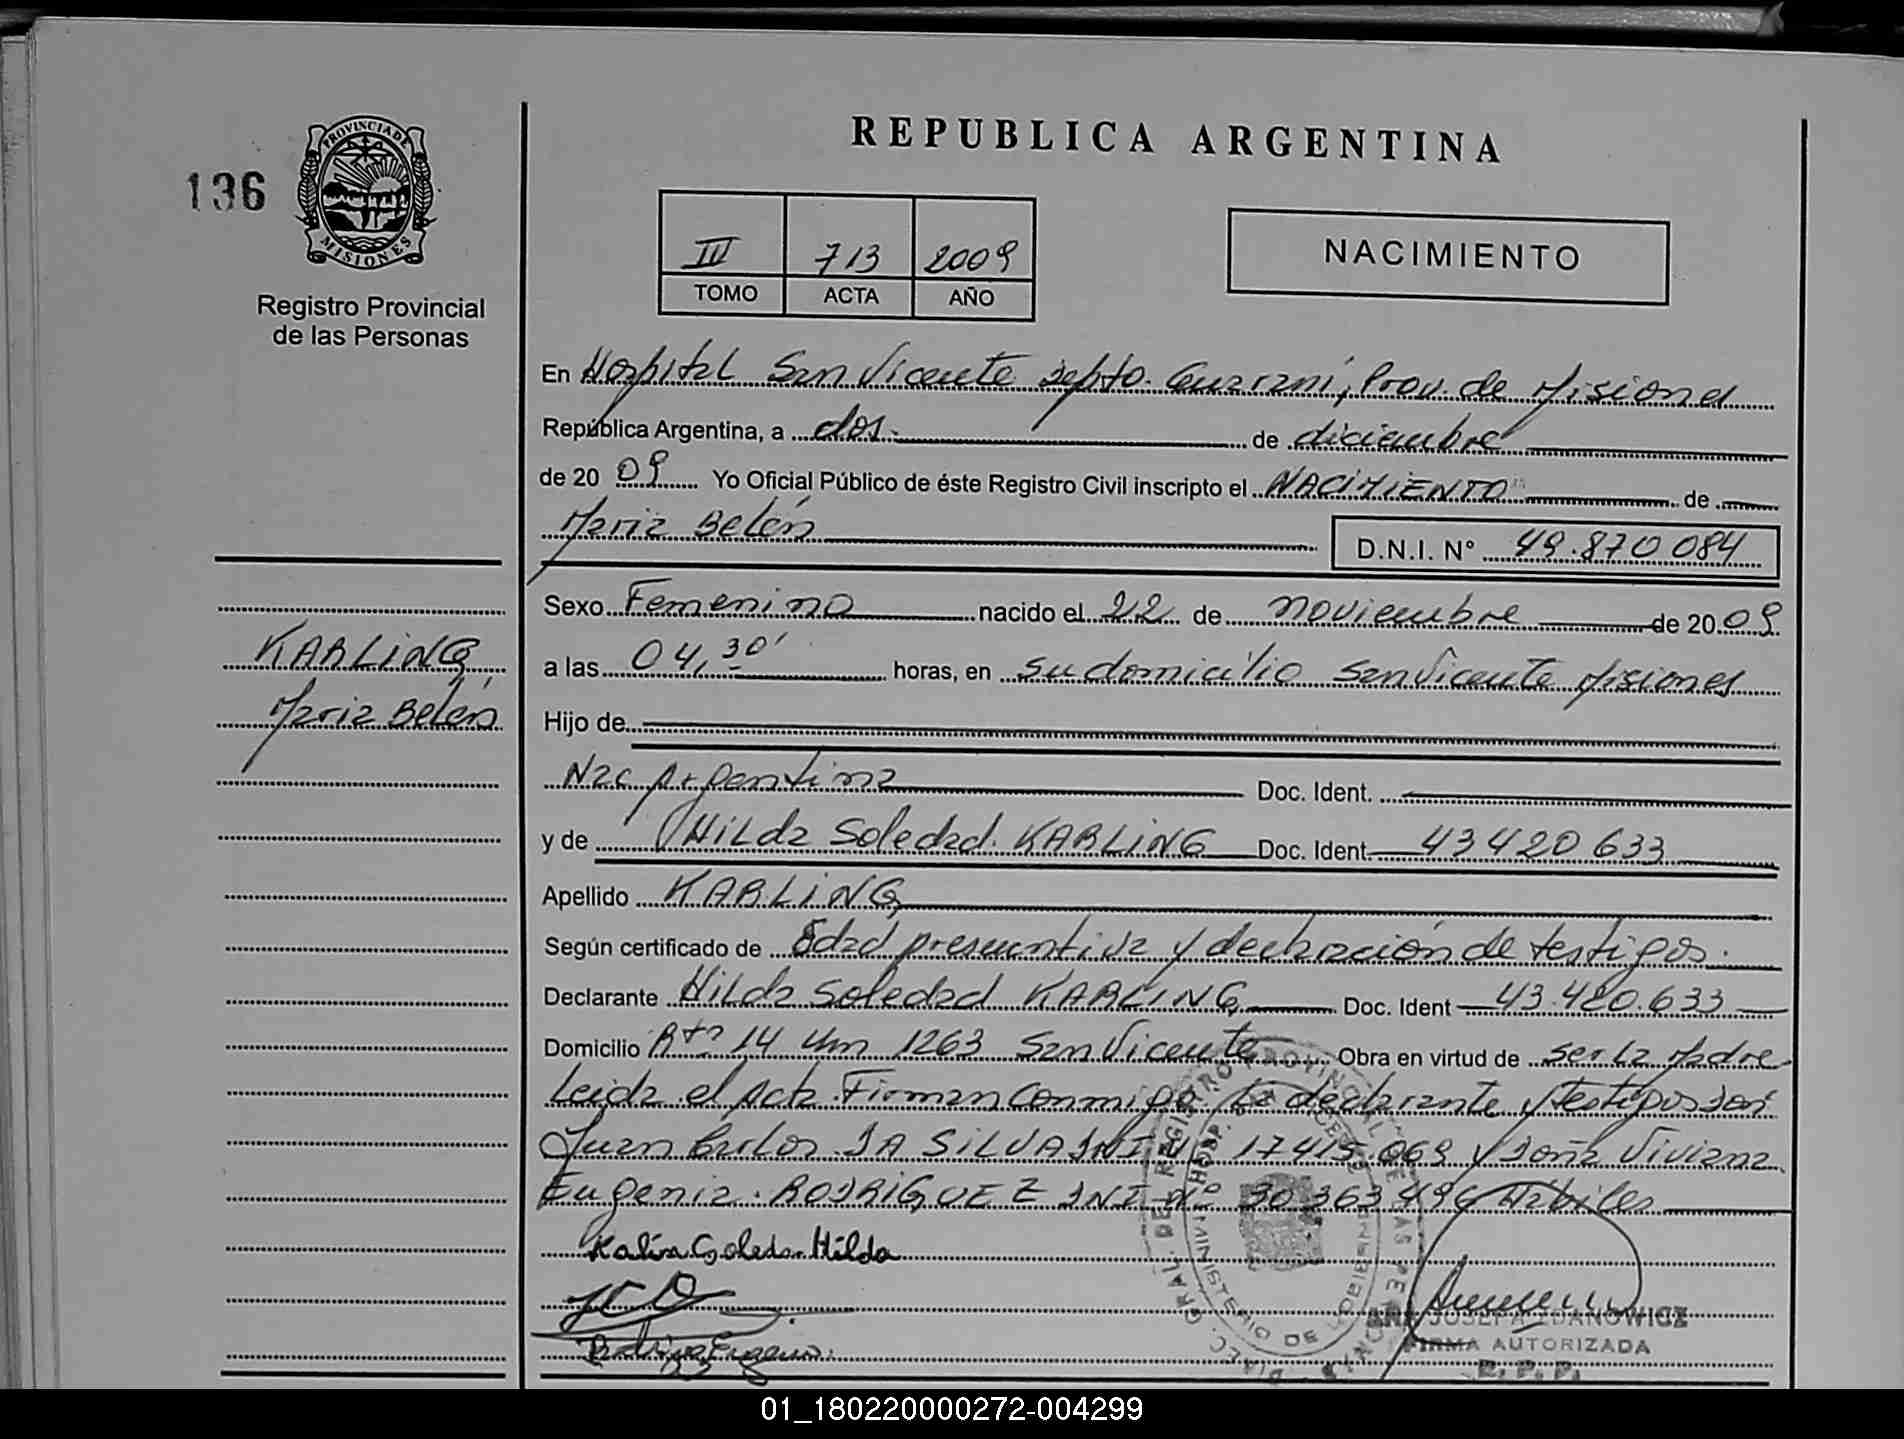 REPUBLICA ARGENTINA
136
PROVINCIA DE MISIONES
Registro Provincial
de las Personas
III 713 2009
TOMO ACTA AÑO
NACIMIENTO
En Hospital San Vicente Depto. Guaraní, Prov. de Misiones
República Argentina, a dos de diciembre
de 20 09 Yo Oficial Público de éste Registro Civil inscripto el NACIMIENTO de
Maria Belén
D.N.I. N° 49.870 084
Sexo Femenino nacido el 22 de noviembre de 20 09
KARLING
Maria Belén
a las 04,30' horas, en su domicilio San Vicente Misiones
Hijo de
Nac Argentina Doc. Ident.
y de Hilda Soledad KARLING Doc. Ident. 43 420 633
Apellido KARLING
Según certificado de Edad presuntiva y declaración de testigos.
Declarante Hilda Soledad KARLING Doc. Ident 43.420.633
Domicilio Rta 14 Km 1263 San Vicente Obra en virtud de ser la Madre
Leida el Acta Firman conmigo la declarante y testigos Don
Juan Carlos DA SILVA DNI N° 17415.069 y Doña Viviana
Eugenia RODRIGUEZ DNI N° 30 363 496 Hábiles
Hilda
JOSEFA ZDANOWICZ
FIRMA AUTORIZADA
R. P. P.
01_180220000272-004299